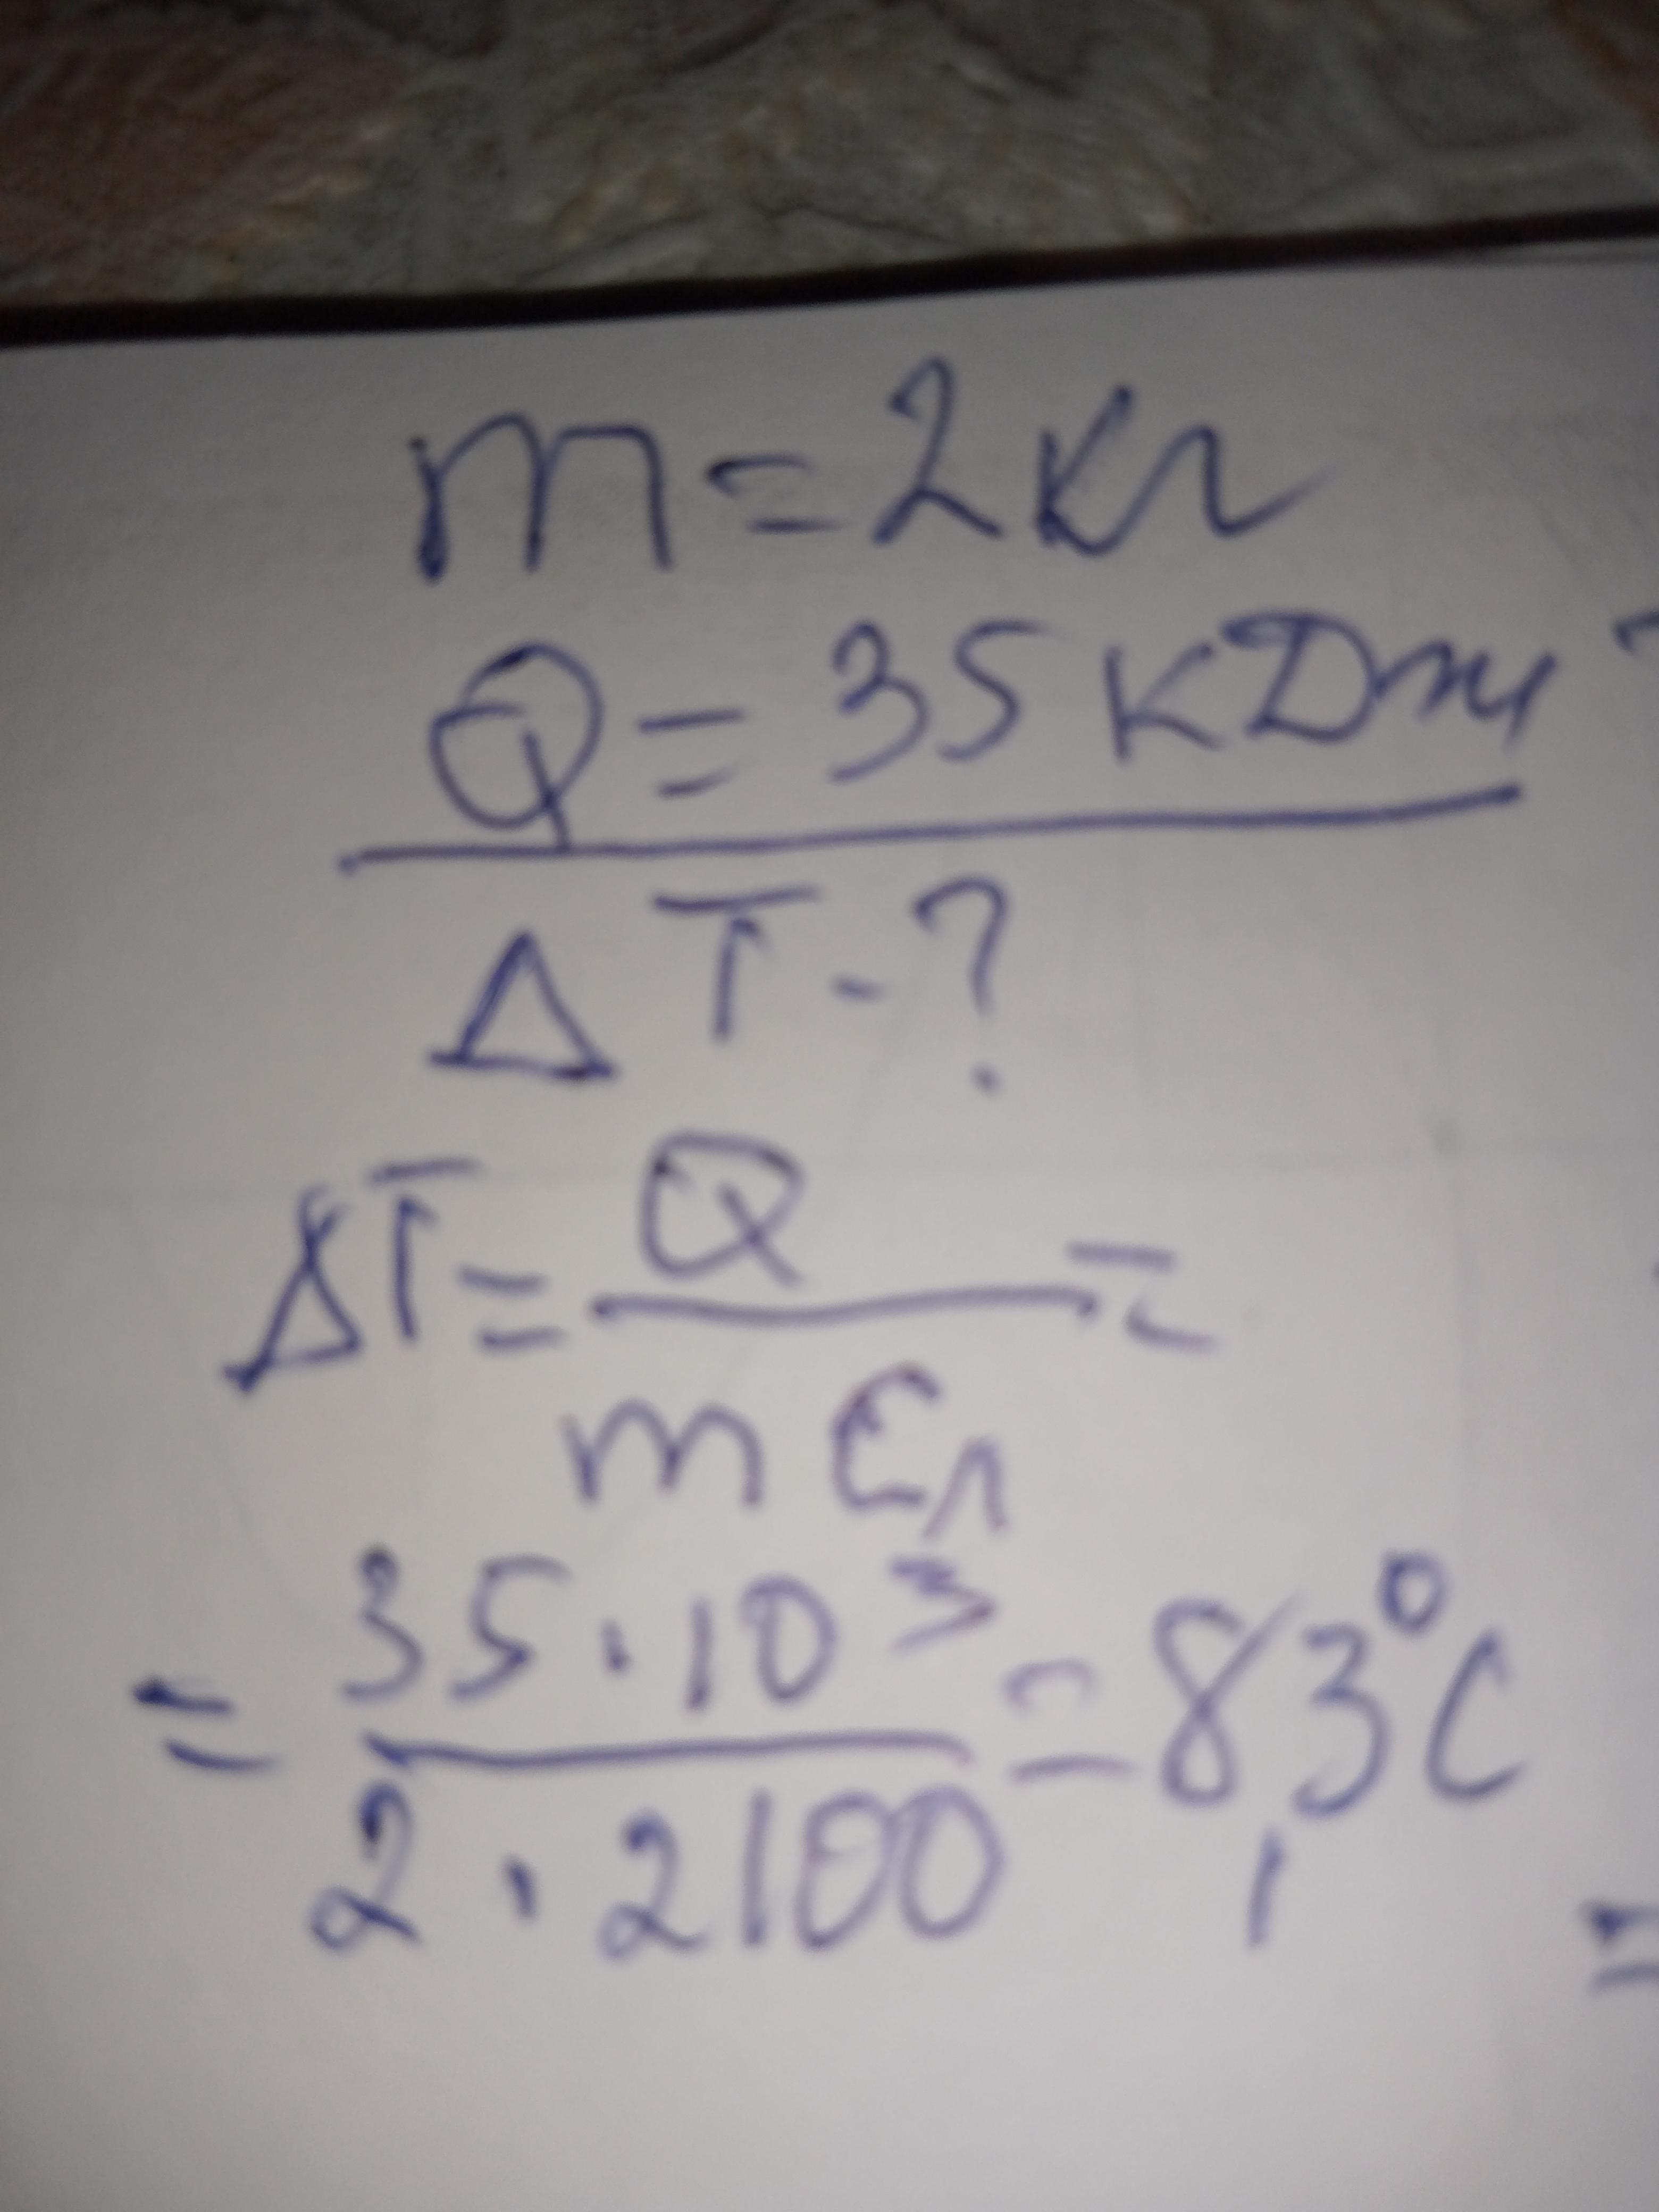 m = 2 кг
Q = 35 кДж
ΔT - ?
ΔT = Q / m Cл =
= 35 · 10³ / 2 · 2100 = 8,3°C